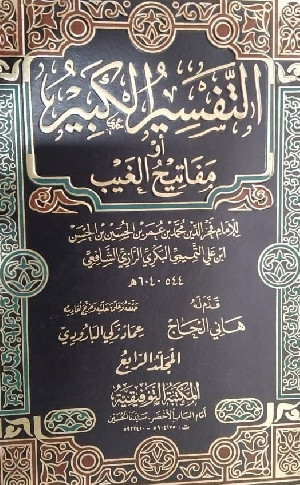 التفسير الكبير
أو
مفاتيح الغيب
للإمام فخر الدين محمد بن عمر بن الحسين بن الحسن
ابن علي التميمي البكري الرازي الشافعي
٥٤٤ - ٦٠٤ هـ
قدم له
هاني الحاج
حققه وعلق عليه وخرج أحاديثه
عماد زكي البارودي
المجلد الرابع
المكتبة التوفيقية
أمام الباب الأخضر - سيدنا الحسين
ت: ٥٩٠٤١٧٥ - ٥٩٢٢٤١٠